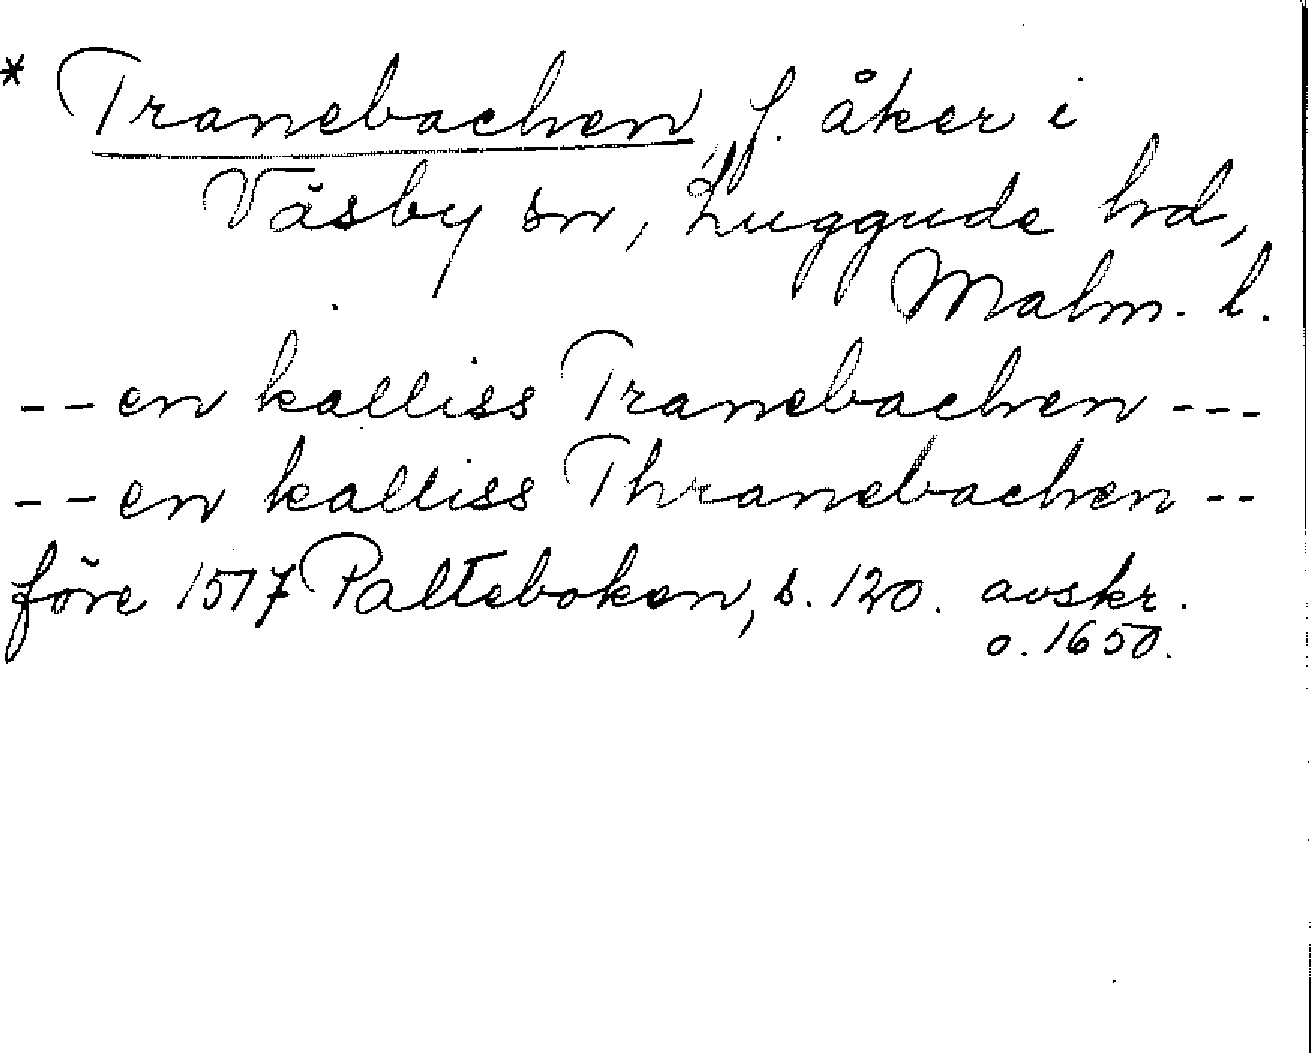 * Tranebachen, f. åker i
Väsby sn, Luggude hd,
Malm. l.
-- en kalliss Tranebachen ---
-- en kalliss Thranebachen --
före 1517 Palteboken, s. 120. avskr.
o. 1650.